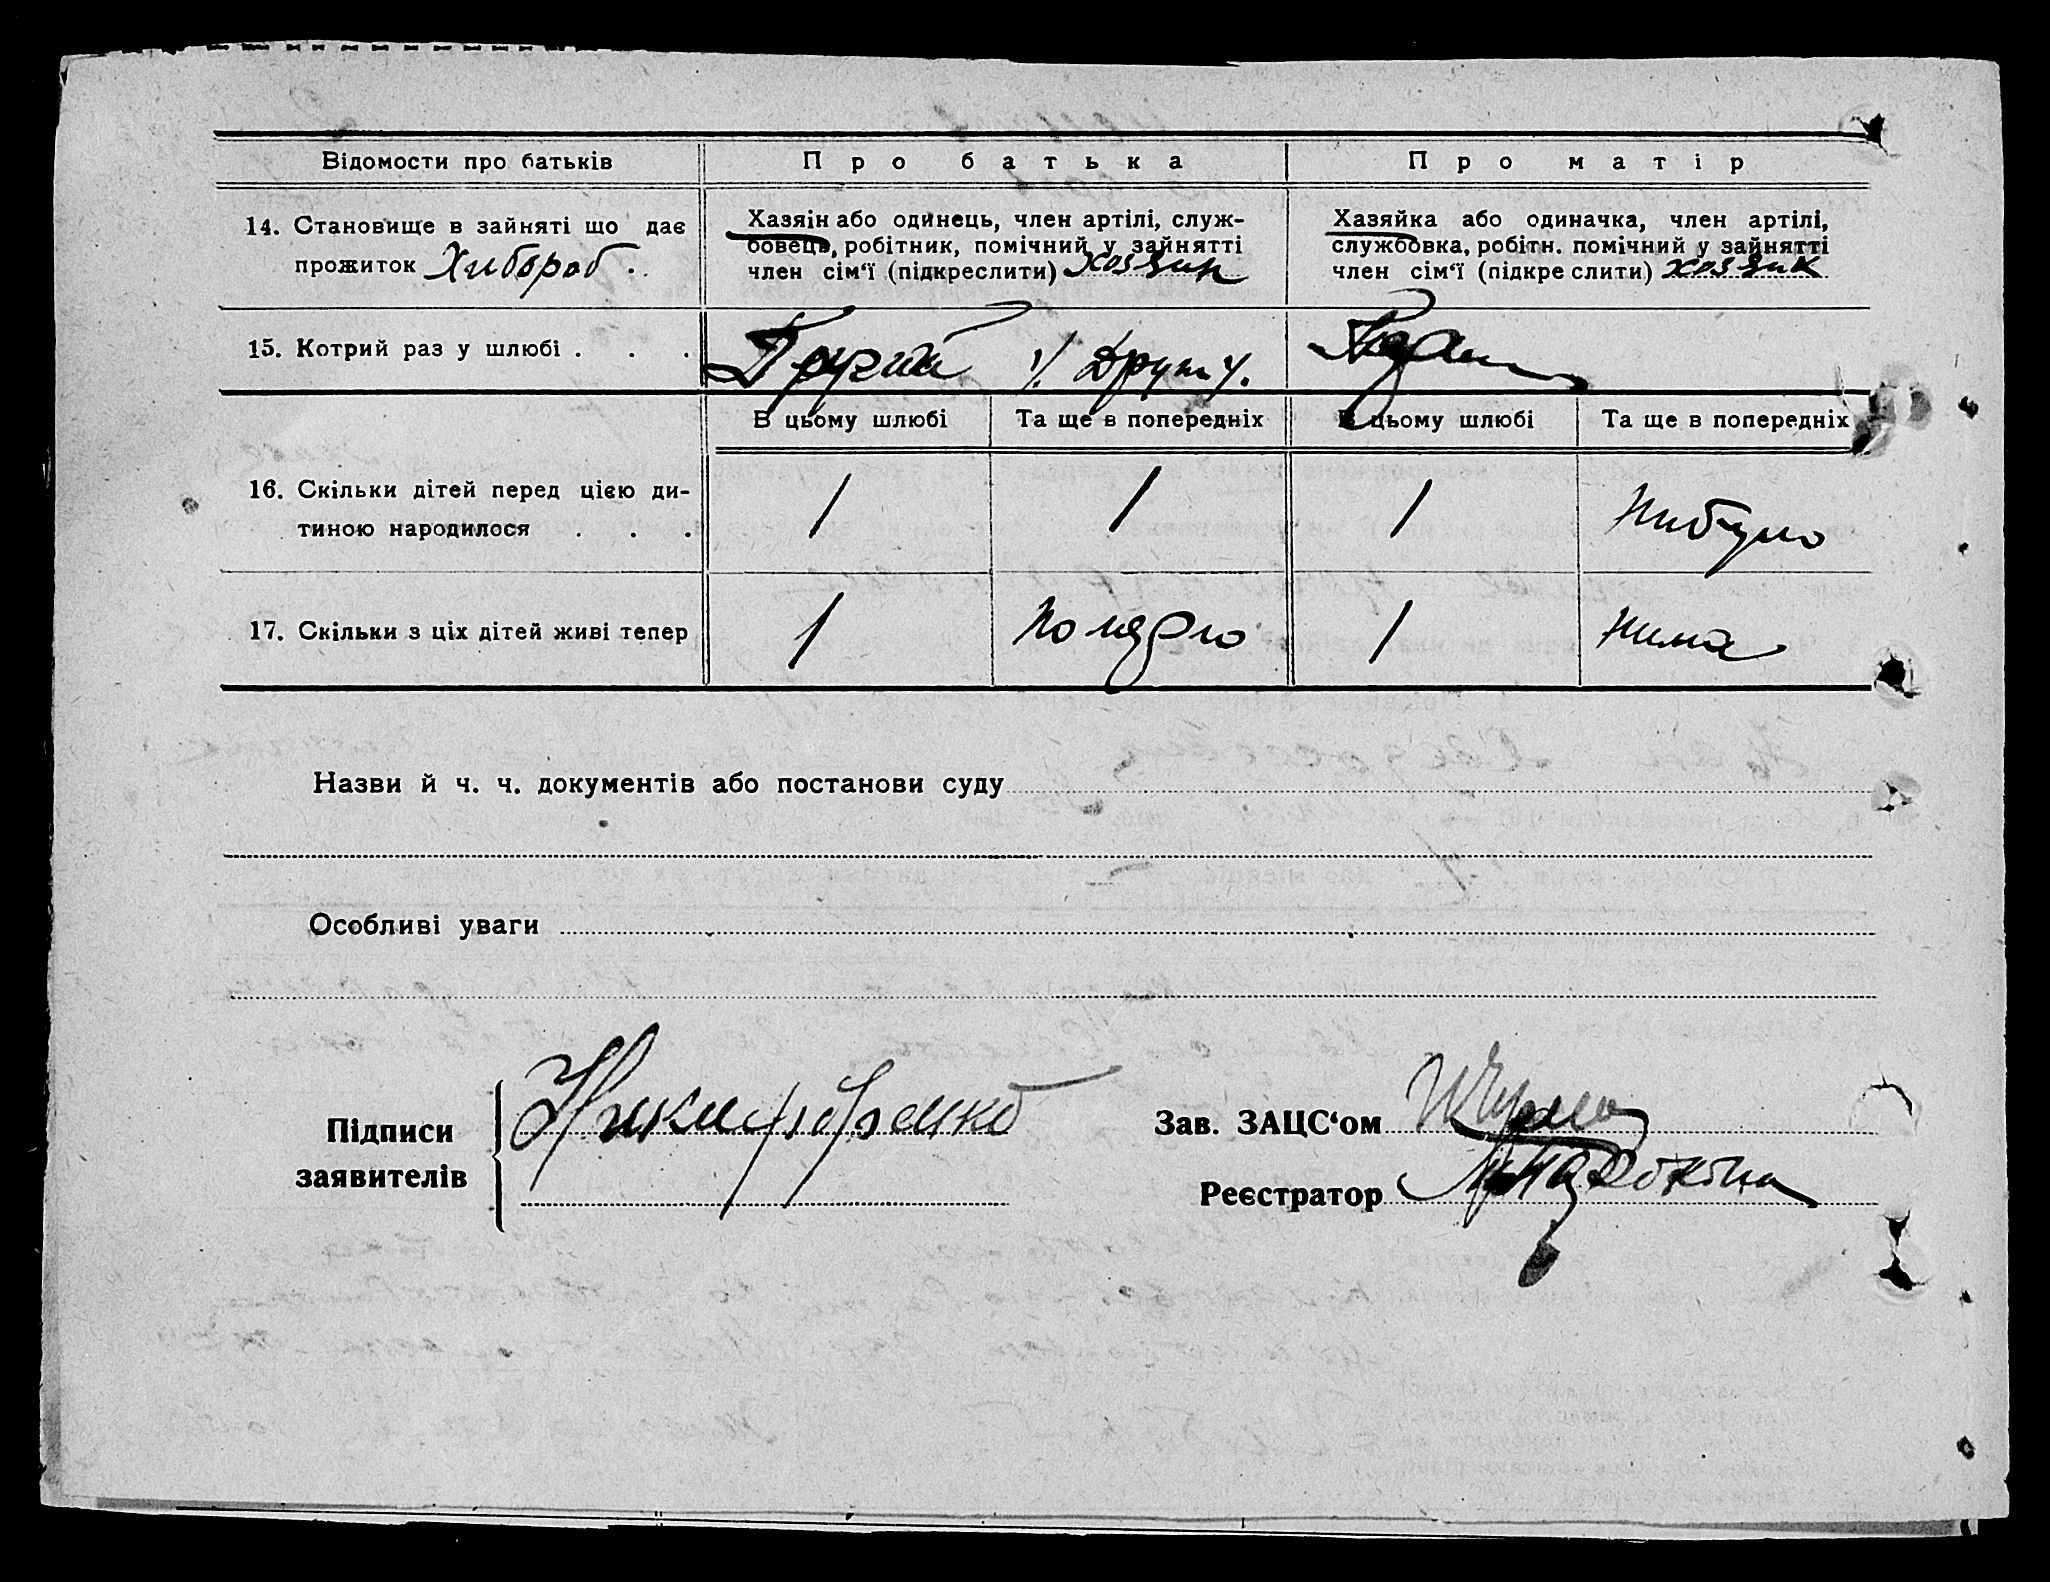 Відомости про батьків
Про батька
Про матір
14. Становище в зайняті що дає
прожиток Хибороб .
Хазяїн або одинець, член артілі, служ-
бовець, робітник, помічний у зайнятті
член сім'ї (підкреслити) хозяин
Хазяйка або одиначка, член артілі,
службовка, робітн. помічний у зайнятті
член сім'ї (підкреслити) хозяик
15. Котрий раз у шлюбі . . .
Другий
В цьому шлюбі
Та ще в попередніх
В цьому шлюбі
Та ще в попередніх
16. Скільки дітей перед цією ди-
тиною народилося . . .
1
1
1
нибуло
17. Скільки з ціх дітей живі тепер
1
1
нима
Назви й ч. ч. документів або постанови суду
Особливі уваги
Підписи
заявителів
Никифоренко
Зав. ЗАЦС'ом
Реєстратор